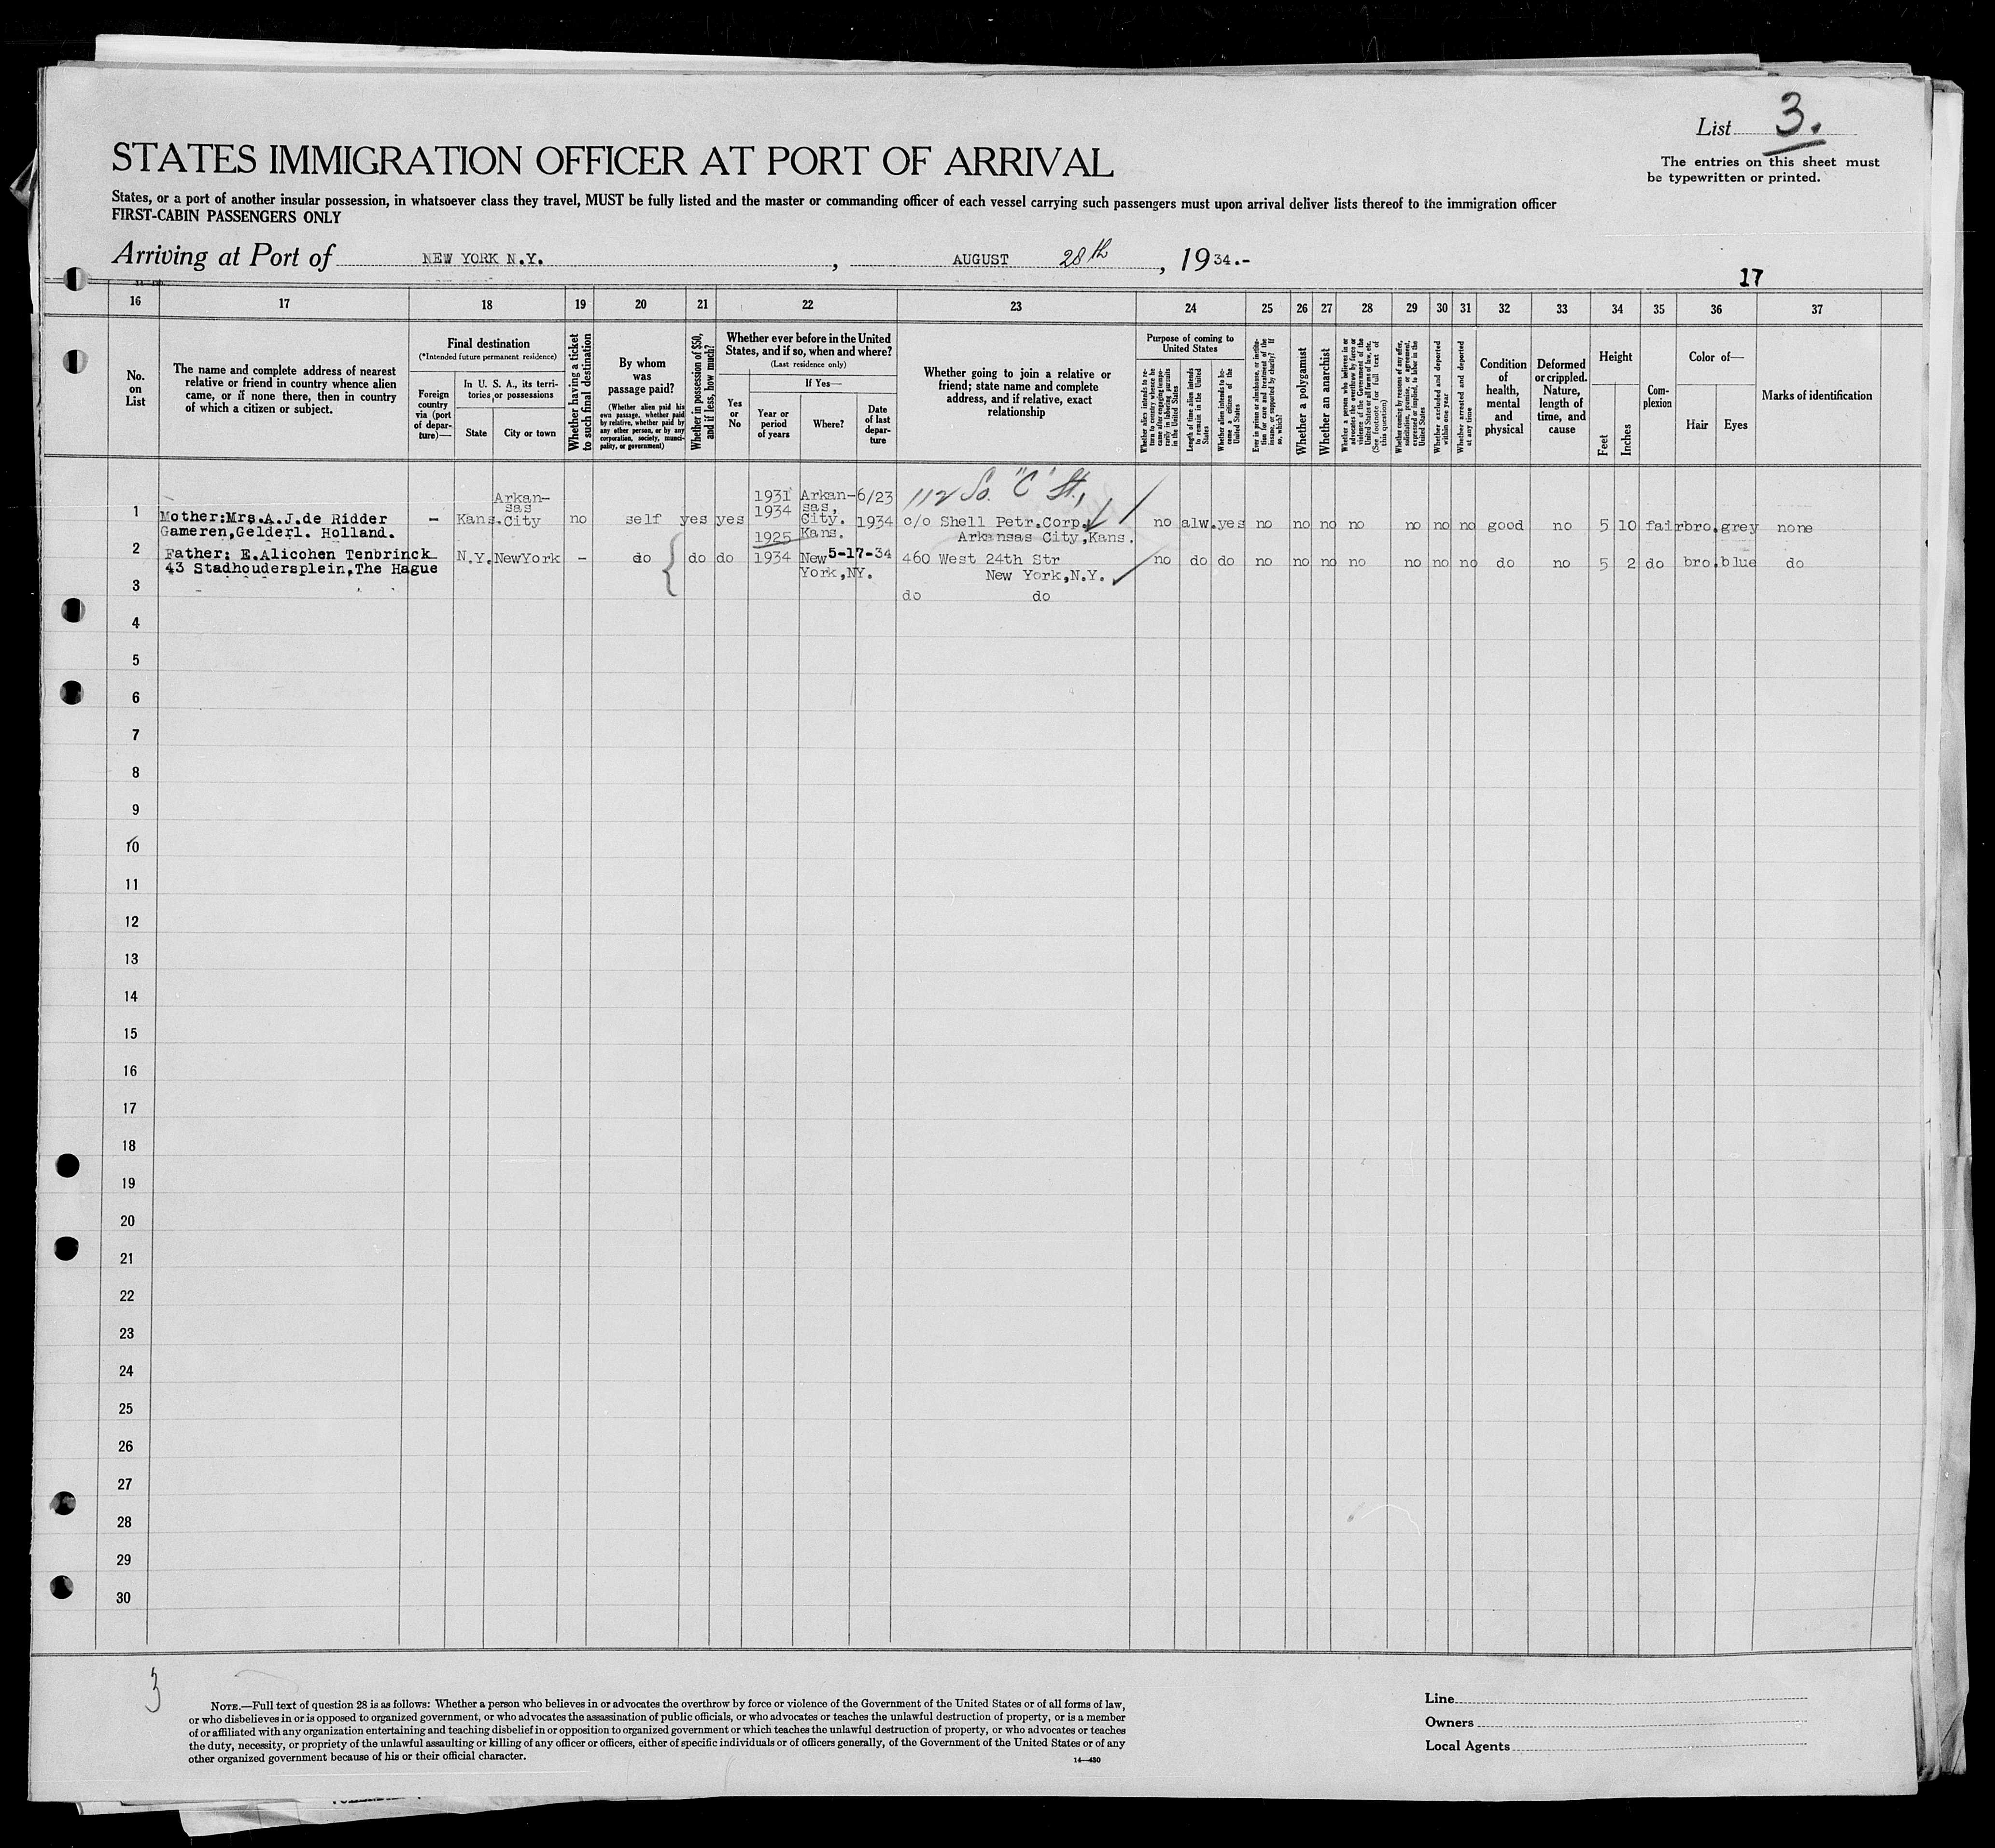 List 3.
The entries on this sheet must
be typewritten or printed.
STATES IMMIGRATION OFFICER AT PORT OF ARRIVAL
States, or a port of another insular possession, in whatsoever class they travel, MUST be fully listed and the master or commanding officer of each vessel carrying such passengers must upon arrival deliver lists thereof to the immigration officer
FIRST-CABIN PASSENGERS ONLY
Arriving at Port of NEW YORK N.Y. , AUGUST 28th , 1934.-
17
16 17 18 19 20 21 22 23 24 25 26 27 28 29 30 31 32 33 34 35 36 37
No. on List
The name and complete address of nearest relative or friend in country whence alien came, or if none there, then in country of which a citizen or subject.
Final destination
(*Intended future permanent residence)
Foreign country via (port of departure)—
In U. S. A., its territories or possessions
State
City or town
Whether having a ticket to such final destination
By whom was passage paid?
(Whether alien paid his own passage, whether paid by relative, whether paid by any other person, or by any corporation, society, municipality, or government)
Whether in possession of $50, and if less, how much?
Whether ever before in the United States, and if so, when and where?
(Last residence only)
Yes or No
If Yes—
Year or period of years
Where?
Date of last departure
Whether going to join a relative or friend; state name and complete address, and if relative, exact relationship
Purpose of coming to United States
Whether alien intends to return to country whence he came after engaging temporarily in laboring pursuits in the United States
Length of time alien intends to remain in the United States
Whether alien intends to become a citizen of the United States
Ever in prison or almshouse, or institution for care and treatment of the insane, or supported by charity? If so, which?
Whether a polygamist
Whether an anarchist
Whether a person who believes in or advocates the overthrow by force or violence of the Government of the United States or all forms of law, etc. (See footnote for full text of this question)
Whether coming by reasons of any offer, solicitation, promise, or agreement, expressed or implied, to labor in the United States
Whether excluded and deported within one year
Whether arrested and deported at any time
Condition of health, mental and physical
Deformed or crippled. Nature, length of time, and cause
Height
Feet
Inches
Complexion
Color of—
Hair
Eyes
Marks of identification
1 Mother:Mrs.A.J.de Ridder
Gameren,Gelderl. Holland.
- Kans. Arkansas City no self yes yes 1931 1934 Arkansas, City. Kans. 6/23 1934
112 So. "C" St.,
c/o Shell Petr.Corp.
Arkansas City,Kans.
no alw. yes no no no no no no no good no 5 10 fair bro. grey none
2 Father: E.Alicohen Tenbrinck
43 Stadhoudersplein,The Hague
N.Y. NewYork - do do do 1925 1934 New York,NY. 5-17-34
460 West 24th Str
New York,N.Y.
no do do no no no no no no no do no 5 2 do bro. blue do
3 do do
4
5
6
7
8
9
10
11
12
13
14
15
16
17
18
19
20
21
22
23
24
25
26
27
28
29
30
3
NOTE.—Full text of question 28 is as follows: Whether a person who believes in or advocates the overthrow by force or violence of the Government of the United States or of all forms of law,
or who disbelieves in or is opposed to organized government, or who advocates the assassination of public officials, or who advocates or teaches the unlawful destruction of property, or is a member
of or affiliated with any organization entertaining and teaching disbelief in or opposition to organized government or which teaches the unlawful destruction of property, or who advocates or teaches
the duty, necessity, or propriety of the unlawful assaulting or killing of any officer or officers, either of specific individuals or of officers generally, of the Government of the United States or of any
other organized government because of his or their official character.
14—430
Line
Owners
Local Agents